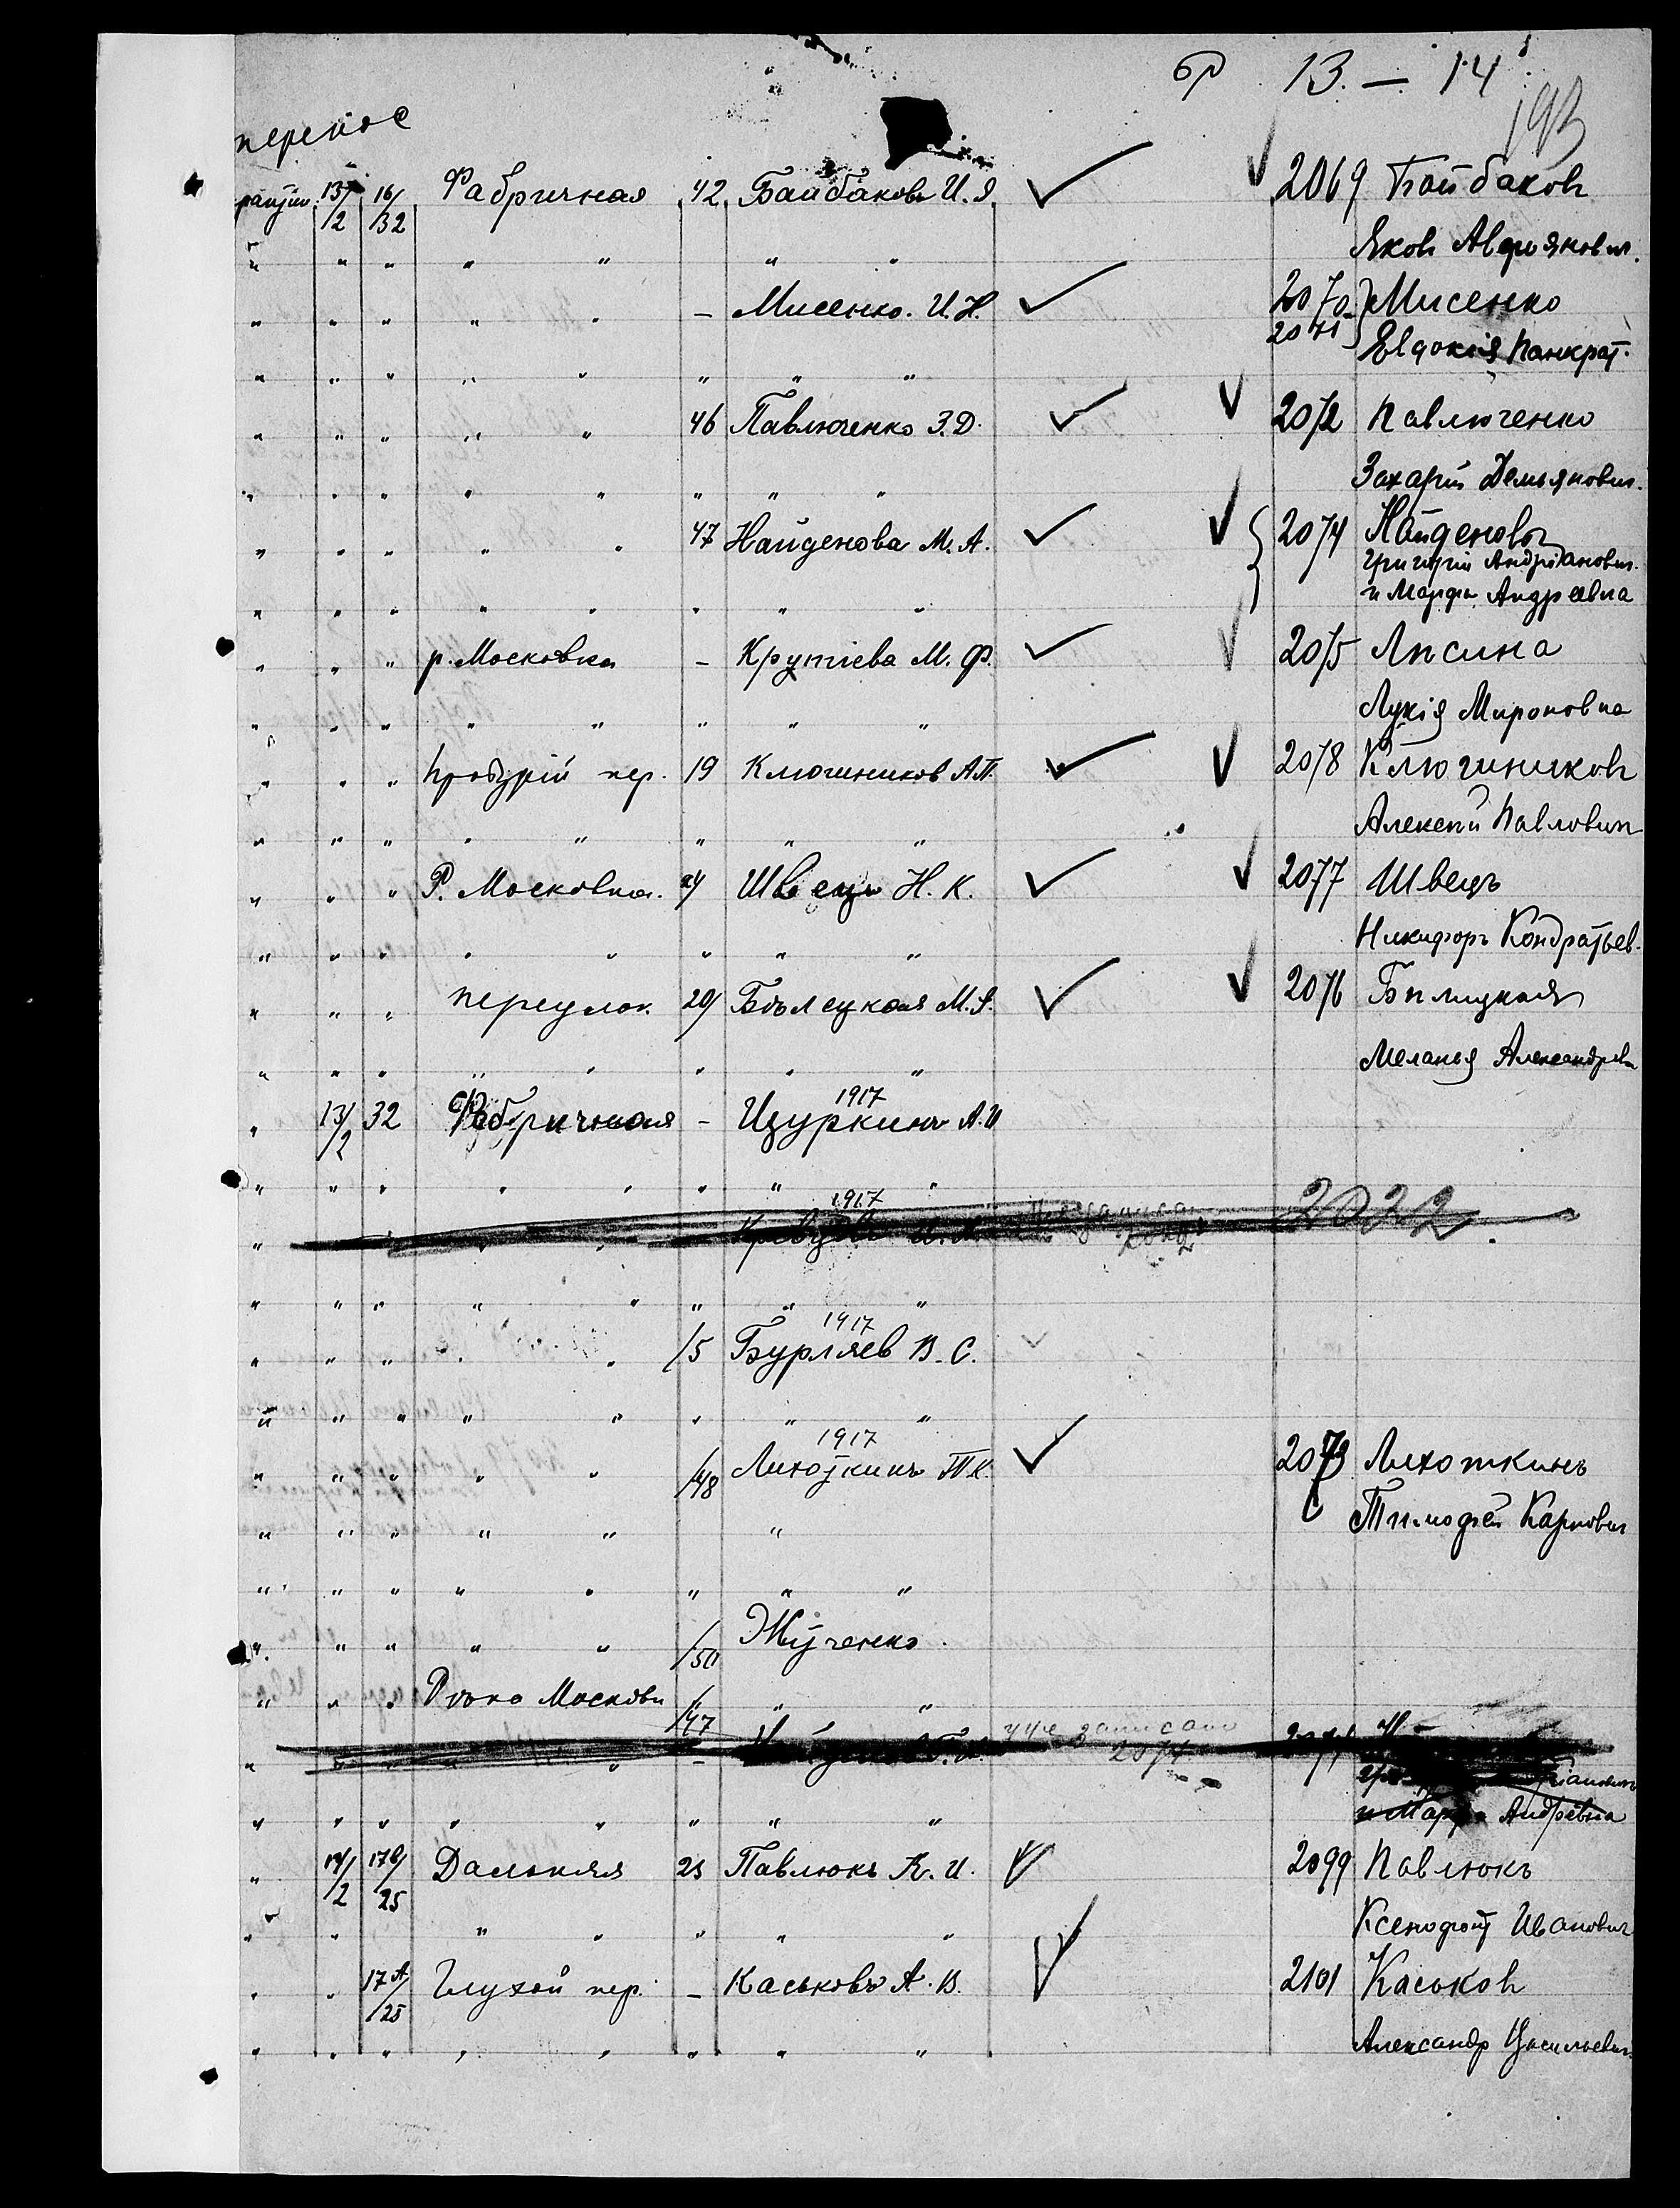 бр 13. — 14
193
перенос
13/2 16/32 Фабричная 42 Байбаковъ И. Я. 2069 Байбаковъ
" " " " " " " Яковъ
" " " " " – Мисенко. И. Н. 2070 Мисенко
2071 Евдокія Панкрат.
" " " " " " " "
" " " " " 46 Павлюченко З. Д. 2072 Павлюченко
" " " " " " " " Захарій Демьянович.
" " " " " 47 Найденова М. А. 2074 Найденовъ
Григорій Андріанович.
" " " " " " " " и Марфа Андреевна
" " " р. Московка – Крутіева М. Ф. 2075 Лисина
" " " " " " " " Лукія Мироновна
" " " пер. 19 Ключниковъ А. П. 2078 Ключниковъ
" " " " " " " " Алексей Павлович
" " " Р. Московка. 24 Швецъ Н. К. 2077 Швецъ
" " " " " " " " Никифоръ Кондратьев.
" " " переулок. 29 Бѣлецкая М. А. 2076 Билицкая
" " " " " " " " Меланья Александров
1917
" 13/2 32 Фабричная – Цуркинъ А. И
" " " " " " " "
1917
" Кравцовъ И. 2022.
" " " " " " " "
1917
" " " " " /5 Бурляев В. С.
" " " " " " " "
1917
" " " " " /48 Лихоткинъ Т. К. 2073 Лихоткинъ
" " " " " " Тимофей Карпович
" " " " " " " "
" " " " " /50 Жученко.
" " " Рѣка Московка /47 " "
" " " " " – уже записан 2074
и Марфа Андревна
" " " " " " " "
" 14/2 17б/25 Дальняя 23 Павлюкъ К. И. 2099 Павлюкъ
" " " " " " " Ксенофонт Иванович
" " 17А/25 Глухой пер. – Каськовъ А. В. 2101 Каськовъ
" " " " " " " " Александр Васильевич